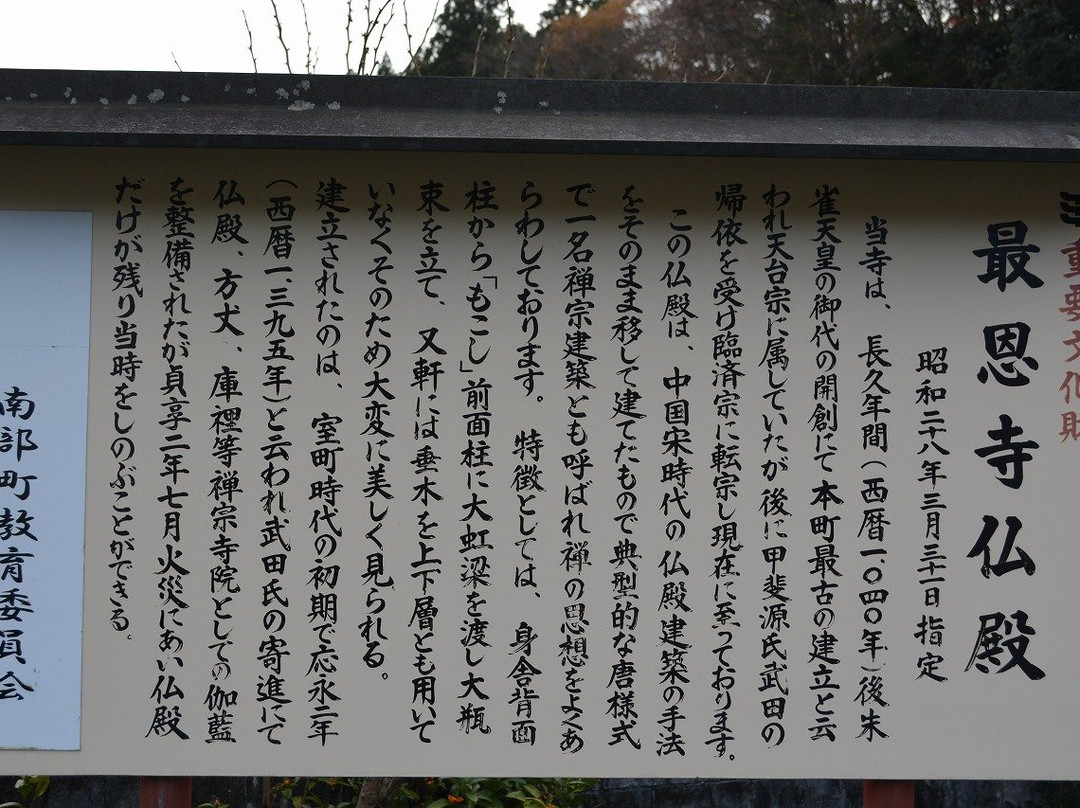 重要文化財
最恩寺仏殿
昭和二十八年三月三十一日指定
当寺は、長久年間(西暦一、〇四〇年)後朱
雀天皇の御代の開創にて本町最古の建立と云
われ天台宗に属していたが後に甲斐源氏武田の
帰依を受け臨済宗に転宗し現在に至っております。
この仏殿は、中国宋時代の仏殿建築の手法
をそのまま移して建てたもので典型的な唐様式
で一名禅宗建築とも呼ばれ禅の思想をよくあ
らわしております。特徴としては、身舎背面
柱から「もこし」前面柱に大虹梁を渡し大瓶
束を立て、又軒には垂木を上下層とも用いて
いなくそのため大変に美しく見られる。
建立されたのは、室町時代の初期で応永二年
(西暦一、三九五年)と云われ武田氏の寄進にて
仏殿、方丈、庫裡等禅宗寺院としての伽藍
を整備されたが貞享二年七月火災にあい仏殿
だけが残り当時をしのぶことができる。
南部町教育委員会